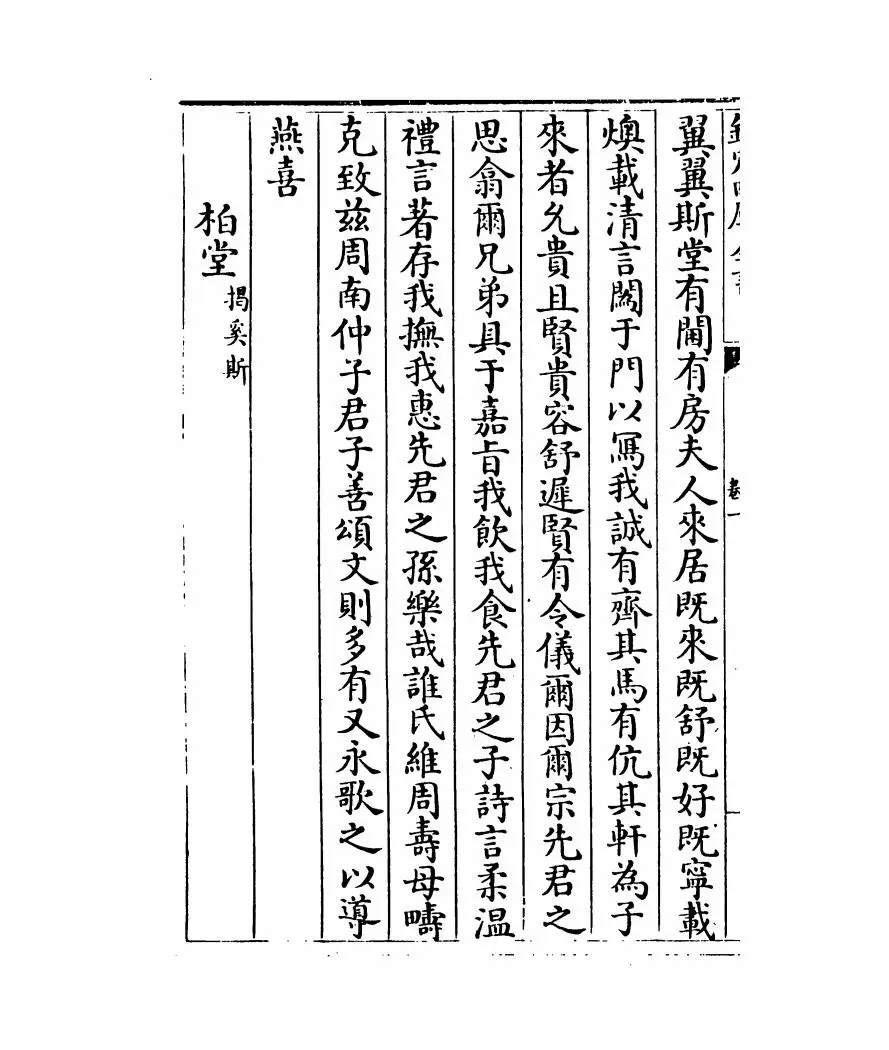 欽定四庫全書
卷一
翼翼斯堂有閫有房夫人來居既來既舒既好既寧載
燠載清言闞于門以寫我誠有齊其馬有伉其軒為子
來者允貴且賢貴容舒遲賢有令儀爾因爾宗先君之
思翕爾兄弟具于嘉旨我飲我食先君之子詩言柔溫
禮言著存我撫我惠先君之孫樂哉誰氏維周壽母疇
克致兹周南仲子君子善頌文則多有又永歌之以導
燕喜
柏堂
揭奚斯